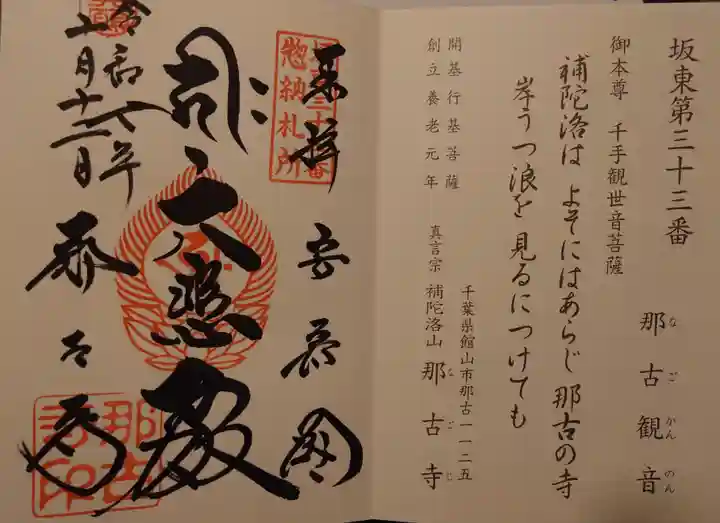 坂東第三十三番
那古観音
なごかんのん
御本尊 千手観世音菩薩
補陀洛は よそにはあらじ 那古の寺
岸うつ浪を 見るにつけても
開基 行基菩薩
創立 養老元年
千葉県館山市那古一一二五
真言宗 補陀洛山 那古寺
なごじ
奉拝
坂東三十三番
惣納札所
大悲殿
令和六年
十二日
那古寺
那古
寺印